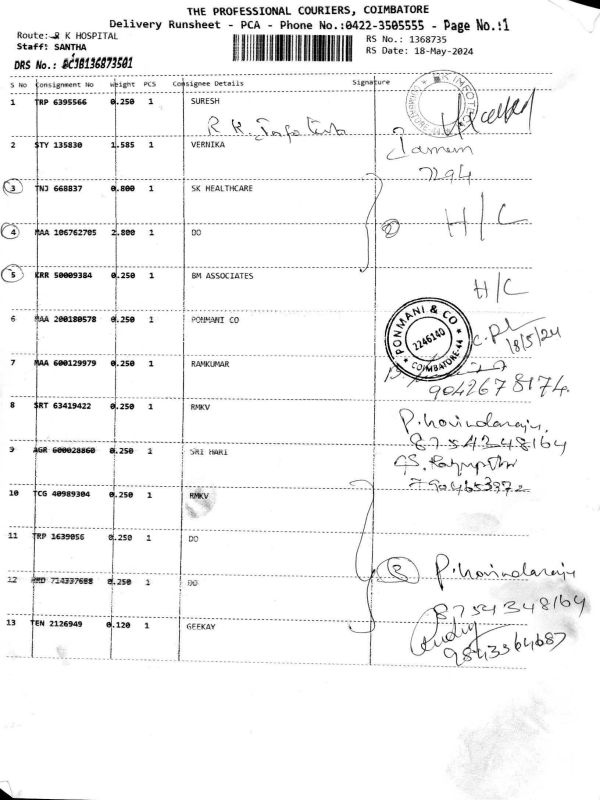 THE PROFESSIONAL COURIERS, COIMBATORE
Delivery Runsheet - PCA - Phone No.:0422-3505555 - Page No.:1
Route: R K HOSPITAL
RS No.: 1368735
Staff: SANTHA
RS Date: 18-May-2024
DRS No.: PCJB136873501
S No Consignment No Weight PCS Consignee Details Signature
1 TRP 6395566 0.250 1 SURESH
2 STY 135830 1.585 1 VERNIKA
7294
3 TNJ 668837 0.800 1 SK HEALTHCARE
H/C
4 MAA 106762705 2.800 1 DO
2
5 KRR 50009384 0.250 1 BM ASSOCIATES
H/C
6 MAA 200180578 0.250 1 PONMANI CO
PONMANI & CO
2246140
COIMBATORE-44
18/5/24
7 MAA 600129979 0.250 1 RAMKUMAR
9042678174.
8 SRT 63419422 0.250 1 RMKV
P. Govindaraju,
8754348164
9 AGR 600028860 0.250 1 SRI HARI
10 TCG 40989304 0.250 1 RMKV
11 TRP 1639056 0.250 1 DO
3 P. Govindaraju
12 714337688 0.250 1 DO
8754348164
13 TEN 2126949 0.120 1 GEEKAY
9843364687